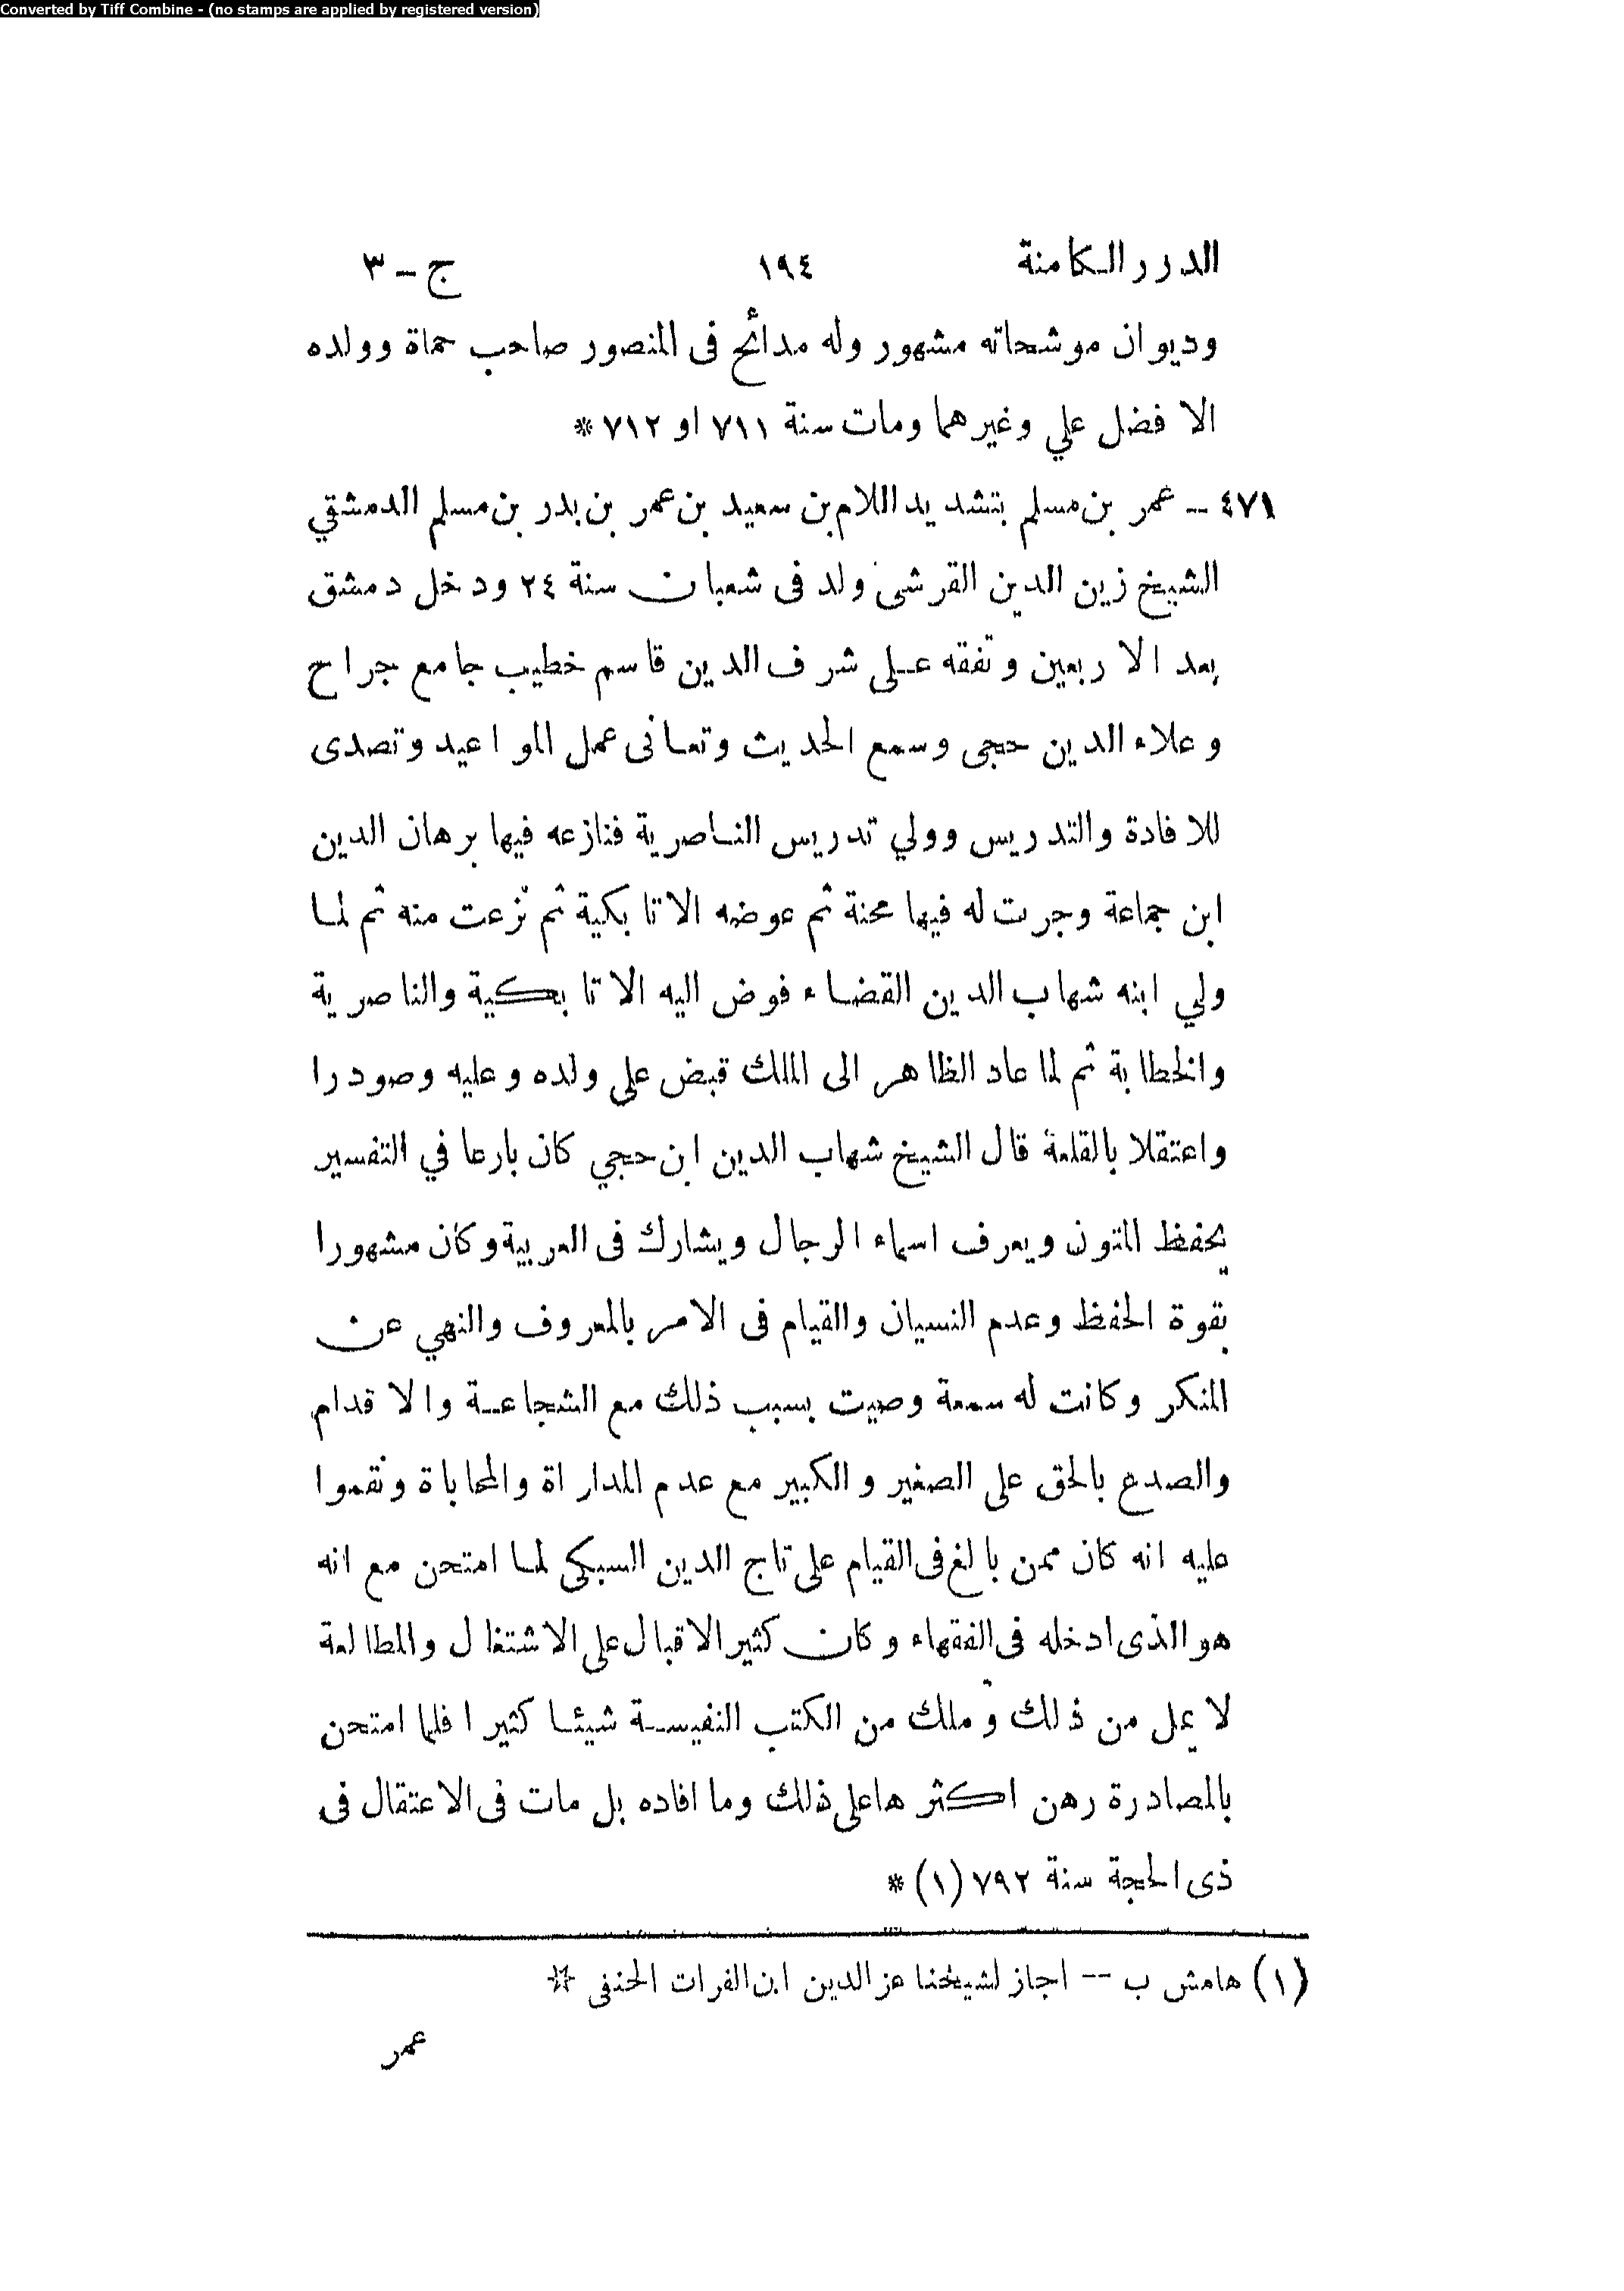 Converted by Tiff Combine - (no stamps are applied by registered version)
الدرر الكامنة ١٩٤ ج – ٣
وديوان موشحاته مشهور وله مدائح فى المنصور صاحب حماة وولده
الافضل علي وغيرهما ومات سنة ٧١١ او ٧١٢ *
٤٧١ – عمر بن مسلم بتشديد اللام بن سعيد بن عمر بن بدر بن مسلم الدمشقي
الشيخ زين الدين القرشى ولد فى شعبان سنة ٢٤ ودخل دمشق
بعد الاربعين وتفقه على شرف الدين قاسم خطيب جامع جراح
وعلاء الدين حجى وسمع الحديث وتعانى عمل المواعيد وتصدى
للافادة والتدريس وولي تدريس الناصرية فنازعه فيها برهان الدين
ابن جماعة وجرت له فيها محنة ثم عوضه الاتابكية ثم نزعت منه ثم لما
ولي ابنه شهاب الدين القضاء فوض اليه الاتابكية والناصرية
والخطابة ثم لما عاد الظاهر الى الملك قبض على ولده وعليه وصودرا
واعتقلا بالقلعة قال الشيخ شهاب الدين ابن حجي كان بارعا في التفسير
يحفظ المتون ويعرف اسماء الرجال ويشارك فى العربية وكان مشهورا
بقوة الحفظ وعدم النسيان والقيام فى الامر بالمعروف والنهي عن
المنكر وكانت له سمعة وصيت بسبب ذلك مع الشجاعة والاقدام
والصدع بالحق على الصغير والكبير مع عدم المداراة والمحاباة ونقموا
عليه انه كان ممن بالغ فى القيام على تاج الدين السبكى لما امتحن مع انه
هو الذى ادخله فى الفقهاء وكان كثير الاقبال على الاشتغال والمطالعة
لا يمل من ذلك وملك من الكتب النفيسة شيئا كثيرا فلما امتحن
بالمصادرة رهن اكثرها على ذلك وما افاده بل مات فى الاعتقال فى
ذى الحجة سنة ٧٩٢ (١) *
(١) هامش ب -- اجاز لشيخنا عز الدين ابن الفرات الحنفى *
عمر